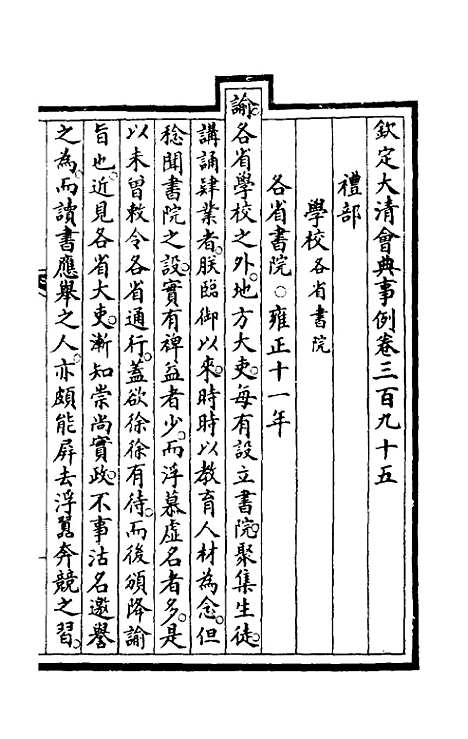 欽定大清會典事例卷三百九十五
禮部
學校各省書院
各省書院○雍正十一年
諭各省學校之外。地方大吏。每有設立書院。聚集生徒。
講誦肄業者。朕臨御以來。時時以教育人材為念。但
稔聞書院之設。實有裨益者少。而浮慕虛名者多。是
以未曾敕令各省通行。蓋欲徐徐有待。而後頒降諭
旨也。近見各省大吏。漸知崇尚實政。不事沽名邀譽
之為。而讀書應舉之人。亦頗能屏去浮囂奔競之習。